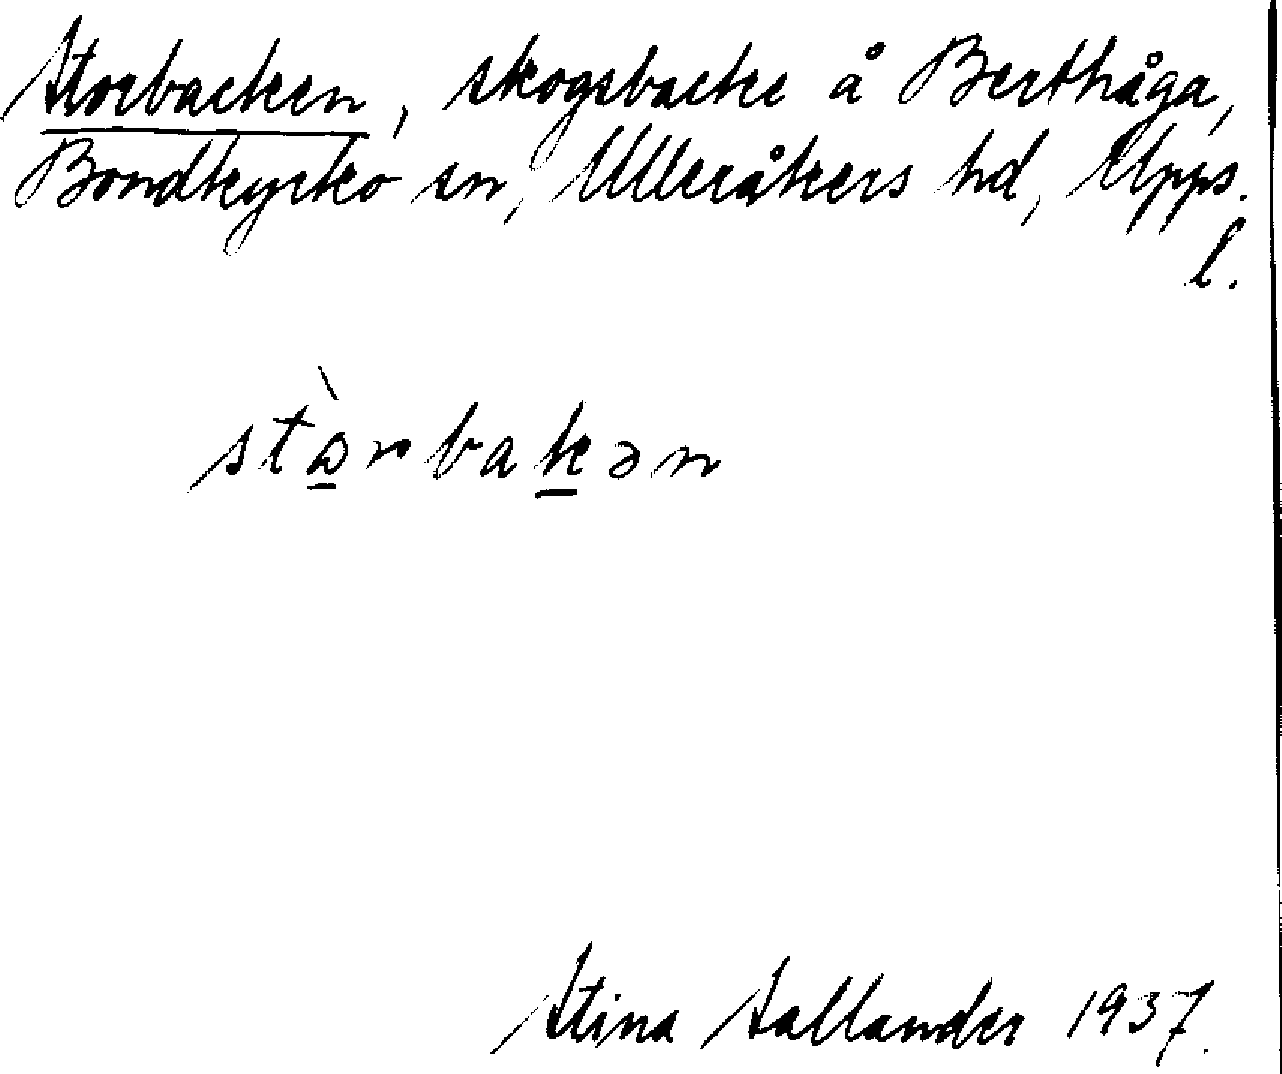 Storbacken, skogsbacke å Berthåga,
Bondkyrko sn, Ulleråkers hd, Upps.
l.
stὼrbakən
Stina Sallander 1937.